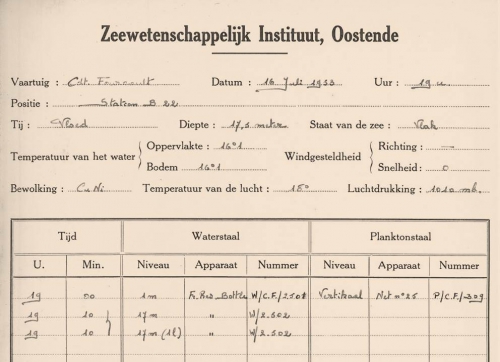 Zeewetenschappelijk Instituut, Oostende
Vaartuig : Cdt. Fourcault Datum : 16 Juli 1933 Uur : 19 u.
Positie : Station B 22
Tij : Vloed Diepte : 17,5 meter Staat van de zee : Vlak
Temperatuur van het water Oppervlakte : 16°1 Windgesteldheid Richting : —
Bodem : 16°1 Snelheid : 0
Bewolking : Cu Ni Temperatuur van de lucht : 18° Luchtdrukking : 1010 mb.
Tijd Waterstaal Planktonstaal
U. Min. Niveau Apparaat Nummer Niveau Apparaat Nummer
19 00 1 m Fr. Res. Bottle W/C.F./2501 Vertikaal Net n° 25 P/C.F./309
19 10 17 m " W/2.502
19 10 17 m (1l) " W/2.502